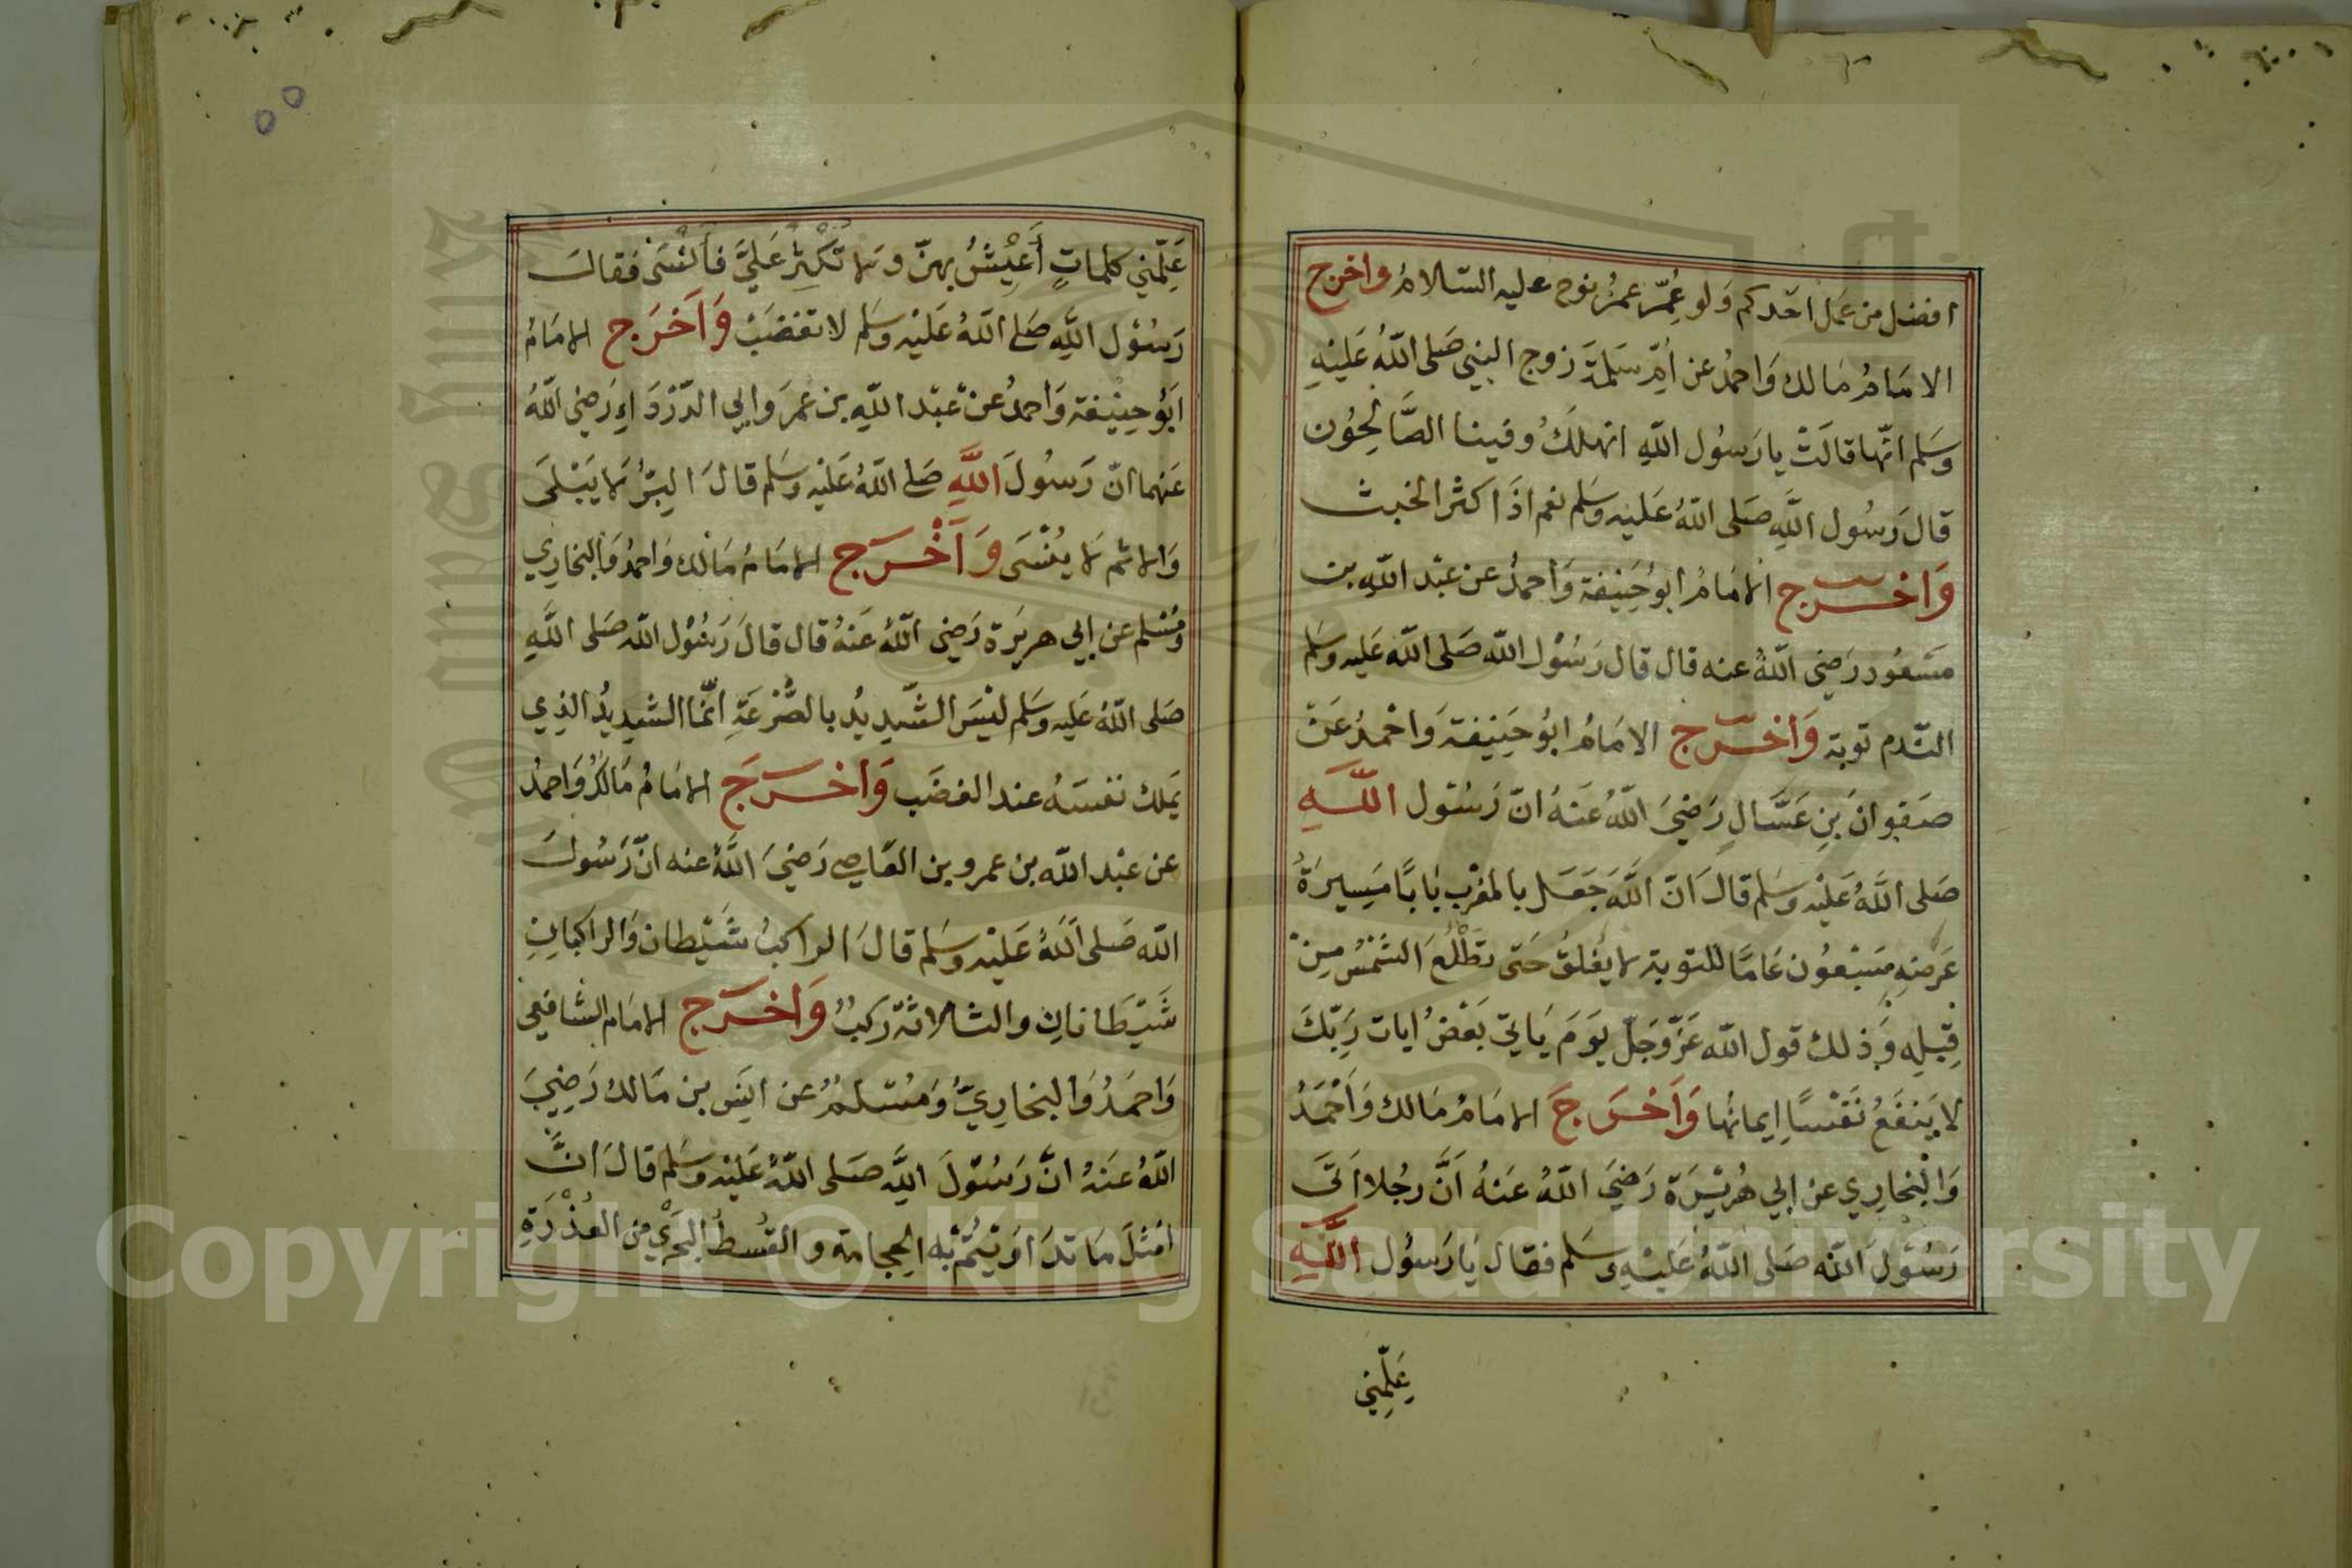 افضل من عمل احدكم ولو عُمِّر عمرُ نوح عليه السلامُ واخرج
الامامُ مالك واحمدُ عن أمِّ سلمةَ زوج النبي صلى اللهُ عليهِ
وسلم انّها قالَتْ يا رسُول اللهِ انهلكُ وفينا الصَّالِحُون
قال رسُول اللهِ صلى اللهُ عليه وسلم نعم اذَا كثر الخبث
وَاخرج الامامُ ابوُ حَنِيفة وَاحمدُ عن عبْد اللهِ بن
مسْعُود رَضِى اللهُ عنه قال قال رسُوْل الله صلى الله عليه وسلم
النّدم توبة وَاخرج الامَامُ ابوُ حَنِيْفة وَاحْمدُ عَنْ
صفوانَ بنِ عَسَّالٍ رَضِيَ اللهُ عَنهُ انّ رَسُول اللَّهِ
صَلى اللَّهُ عَليْه وسَلم قالَ انّ اللَّهَ جَعَل بالمغْرب بَابًا مَسِيرَةُ
عَرضهِ سَبْعُون عَامًا للتوبة لا يُغلقُ حَتى تطْلُعَ الشمْسُ مِنْ
قِبَلِه وَذلك قول الله عَزّ وَجَلّ يوَمَ يَاتِي بَعْضُ ايات رَبِّكَ
لا يَنفَعُ نَفْسًا إيمانُها وَاَخرَجَ الامَامُ مَالك وَأَحْمَدُ
وَالبْخارِي عن ابي هُريْرَة رَضِيَ اللهُ عَنهُ اَنَّ رجُلا اَتَى
رَسُوْلَ الله صَلى اللهُ عَليْهِ وسَلم فقال يَا رَسوُل اللَّهِ
عَلِّمْنِي
عَلِّمْني كلماتٍ أَعِيْشُ بهنّ ولا تُكْثِرْ عَلَيَّ فأَنْسَى فقالَ
رَسُوْل اللَّهِ صَلى اللهُ عَليْه وسَلم لا تغْضَبْ وَاَخْرَج الامَامُ
ابوُ حنِيْفة وَاحمدُ عنْ عبْد اللهِ بن عُمَرَ وَابي الدّرْدَاءِ رَضِى اللهُ
عَنهما انّ رَسُولَ اللَّهِ صَلى اللهُ عَليْه وسَلم قالَ البِرُّ لا يَبْلَى
وَالاثم لا يُنْسَى وَاَخْرَج الامَامُ مَالك وَاحمدُ وَالبخارِي
ومُسْلم عن ابي هريرَة رَضِى اللهُ عَنهُ قال قالَ رَسُوْل الله صَلى اللهِ
صَلى اللهُ عَليه وسَلم ليْسَ الشّدِيدُ بالصُّرْعَةِ انّمَا الشدِيدُ الذِي
يَملك نفسَهُ عند الغضَب وَاخرَجَ الامَامُ مَالكُ وَاحمدُ
عن عبْد الله بن عمرو بن العَاصِي رَضِيَ اللَّهُ عنه انّ رَسُولَ
الله صَلى اللهُ عَليْه وسَلم قالَ الراكبُ شَيْطان وَالراكبانِ
شَيْطَانانِ والثلاثةُ رَكبٌ وَاخرَج الامَام الشافِعى
وَاحمَدُ وَالبخارِيُّ وَمُسْلمُ عن انَس بن مَالك رَضِيَ
اللهُ عَنهُ انَّ رَسُوْلَ اللهِ صَلى اللهُ عَليْه وسَلم قالَ انَّ
امْثلَ مَا تدَاوَيْتُمْ بْه الحِجامة والقُسطُ البَحْرِي من العُذْرَةِ
Copyright © King Saud University